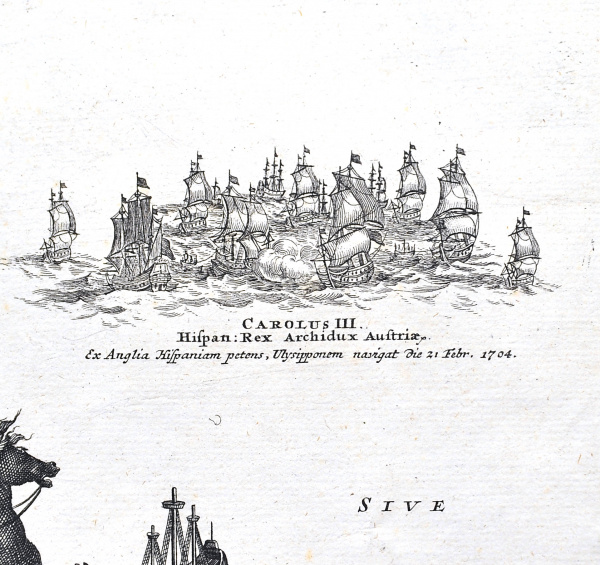 CAROLUS III.
Hiſpan: Rex Archidux Auſtriæ,
Ex Anglia Hiſpaniam petens, Ulysipponem navigat die 21 Febr. 1704.
SIVE